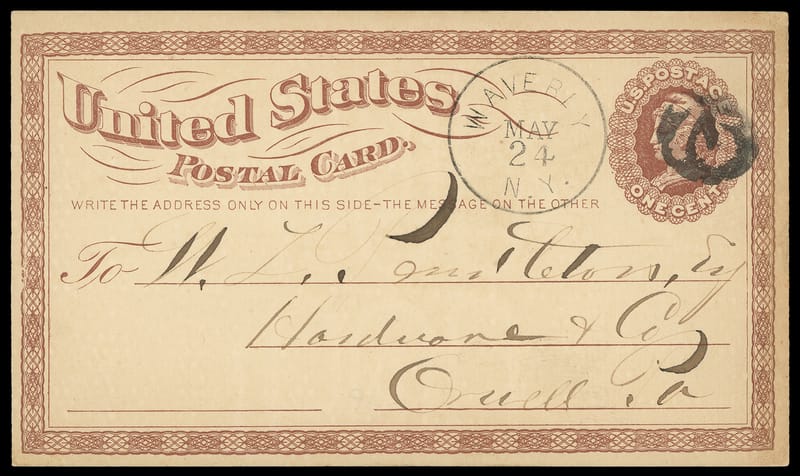 United States
POSTAL CARD.
WRITE THE ADDRESS ONLY ON THIS SIDE-THE MESSAGE ON THE OTHER
WAVERLY
MAY
24
N.Y.
U.S. POSTAGE
ONE CENT
To W. L. Pendleton, Esq
Hardware & Co
Orwell Pa